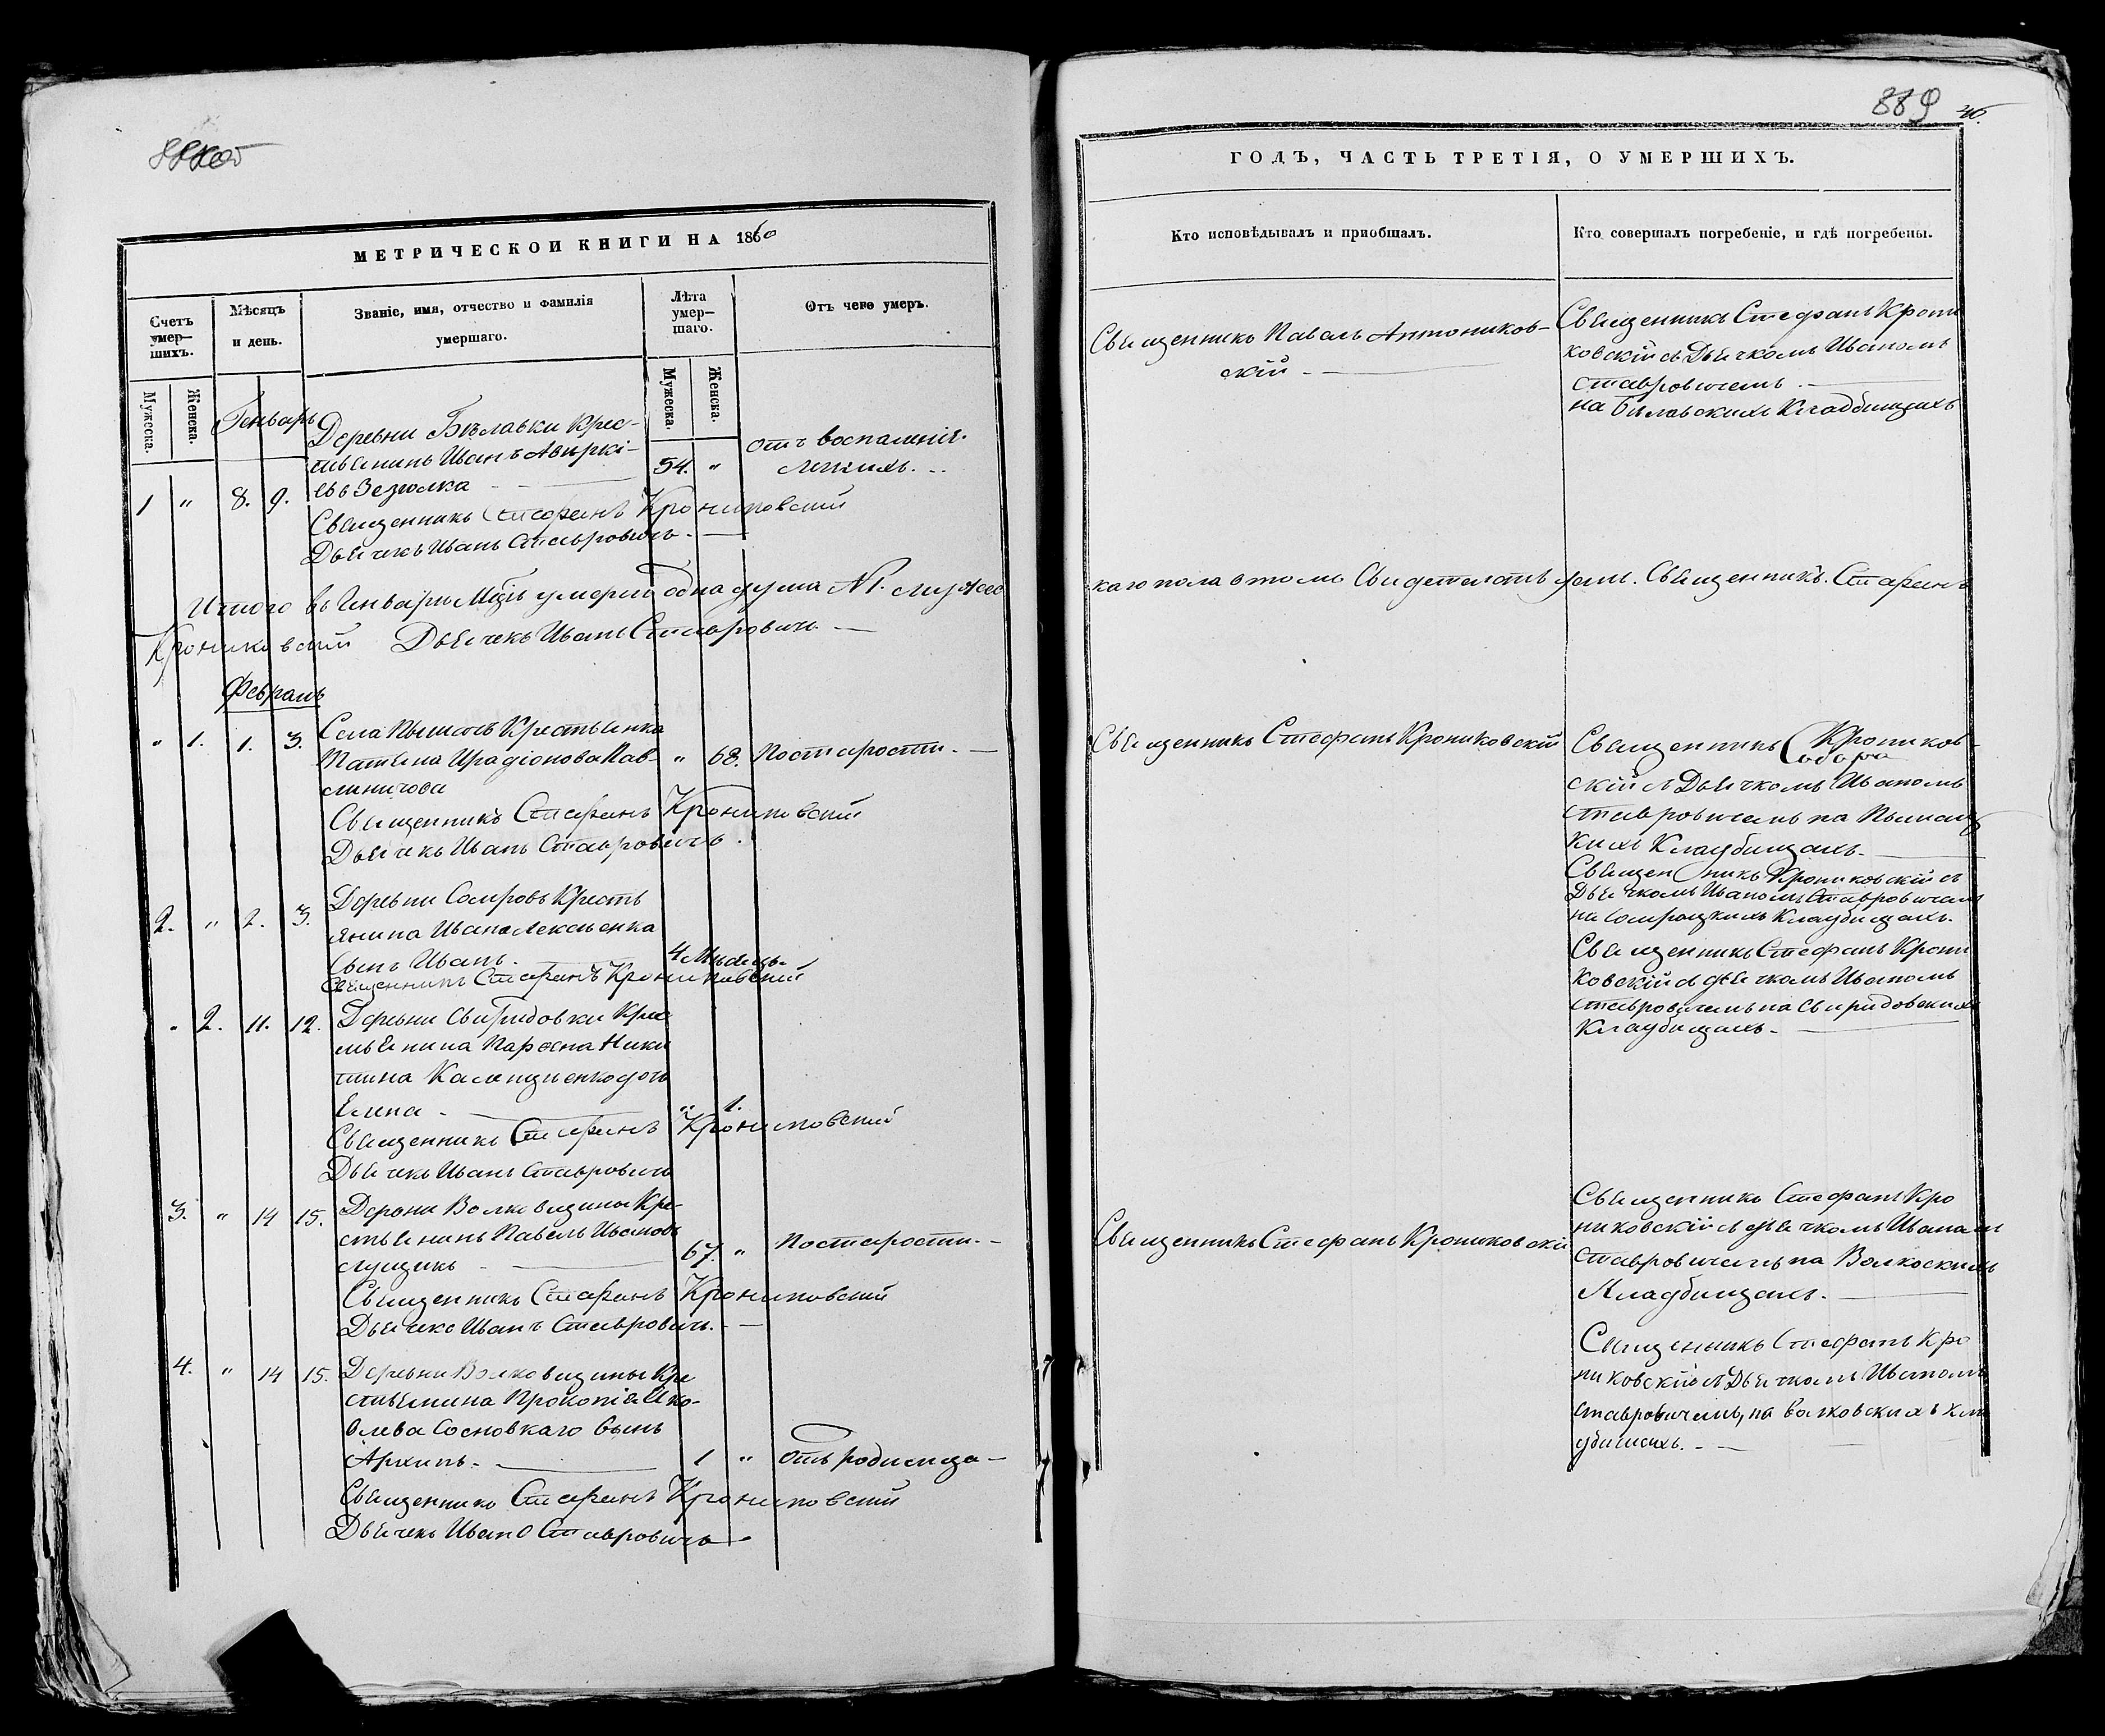 889
МЕТРИЧЕСКОЙ КНИГИ НА 1860
Счетъ умер-шихъ.
Мѣсяцъ и день.
Званіе, имя, отчество и фамилія
умершаго.
Лѣта умер-шаго.
Отъ чего умеръ.
Мужеска.
Женска.
Мужеска.
Женска.
Генварь
Деревни Бѣлавки Крес-
тьянинъ Иванъ Авиркі-
евъ Зезюлка
1 " 8. 9.
54. "
отъ воспаленія
легкихъ.
Священникъ Стефанъ Крониковскій
Дьячекъ Иванъ Ставровичъ.
Итого въ Генварѣ Мцѣ умерш одна душа №1. мужес
Крониковскій Дьячекъ Иванъ Ставровичъ
Февраль
" 1. 1. 3.
Села Пышогъ Крестьянка
Татьяна Ирадіонова Пав-
" 68. По старости.
Священникъ Стефанъ Крониковскій
Дьячекъ Иванъ Ставровичъ.
2. " 2. 3.
Деревни Сомровъ Кресть
янина Ивана
Сынъ Иванъ.
4 Мѣсяц.
Священникъ Стефанъ Крониковскій
" 2. 11. 12.
Деревни Свиридовки Крес
тьянина Парфена Ники
тина дочь
Елена
" 1.
Священникъ Стефанъ Крониковскій
Дьячекъ Иванъ Ставровичъ
3. " 14 15.
Деревни Волковщины Кре-
стьянинъ Павелъ Ивановъ
Лущикъ
67. " По старости.
Священникъ Стефанъ Крониковскій
Дьячекъ Иванъ Ставровичъ.
4. " 14 15.
Деревни Волковщины Кре
стьянина Прокопія Яко-
влева Сосновскаго Сынъ
Архипъ.
1 " Отъ родимца
Священникъ Стефанъ Крониковскій
Дьячекъ Иванъ Ставровичъ
ГОДЪ, ЧАСТЬ ТРЕТІЯ, О УМЕРШИХЪ.
Кто исповѣдывалъ и приобщалъ.
Кто совершалъ погребеніе, и гдѣ погребены.
Священникъ Павелъ Антоников-
скій
Священникъ Стефанъ Крони
ковскій съ Дьячкомъ Иваномъ
Ставровичемъ
на Бѣлавскихъ Кладбищахъ
каго пола в томъ Свидетельствуемъ. Священникъ. Стефанъ
Священникъ Стефанъ Крониковскій
Священникъ Кроников-
скій съ Дьячкомъ Иваномъ
Ставровичемъ на
кихъ Кладбищахъ.
Священникъ Крониковскій съ
Дьячкомъ Иваномъ Ставровичемъ
на Кладбищахъ.
Священникъ Стефанъ Крони
ковскій съ дьячкомъ Иваномъ
Ставровичемъ на Свиридовскихъ
Кладбищахъ.
Священникъ Стефанъ Крониковскій
Священникъ Стефанъ Кро
никовскій съ дьячкомъ Иваномъ
Ставровичемъ на Волкоскихъ
Кладбищахъ.
Священникъ Стефанъ Кро
никовскій съ Дьячкомъ Иваномъ
Ставровичемъ, на волковскихъ кла
дбищахъ.